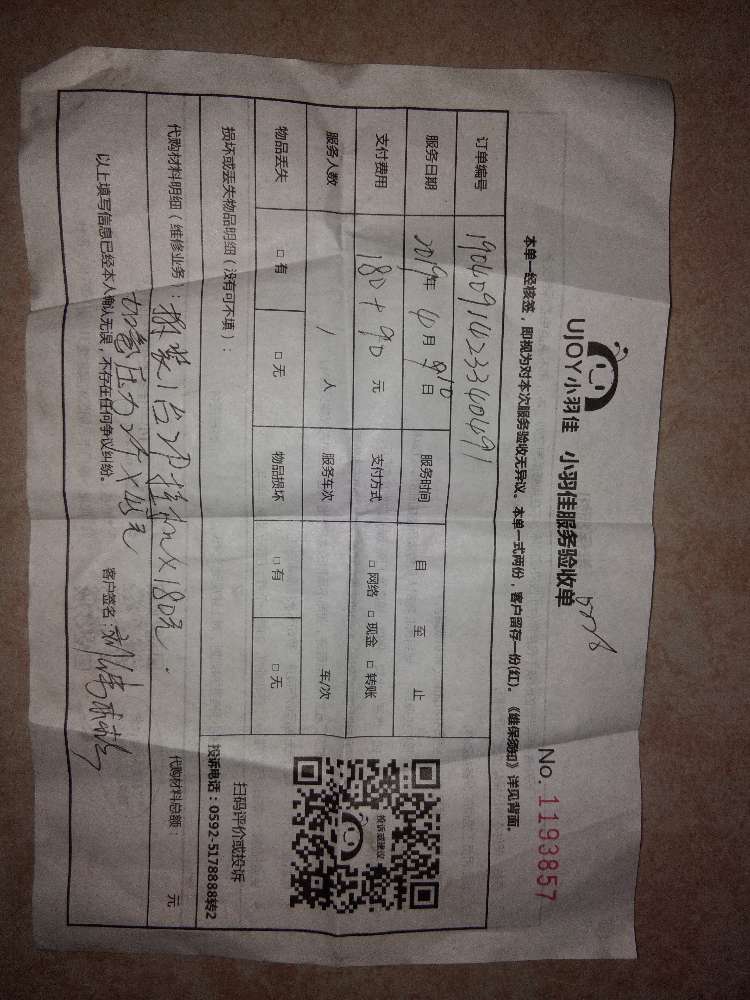 UJOY小羽佳 小羽佳服务验收单
No. 1193857
本单一经核签，即视为对本次服务验收无异议。本单一式两份，客户留存一份(红)。《维保须知》详见背面。
订单编号 1904091423340491
服务日期 2019年 4月 日 服务时间 自 至 止
支付费用 180+90 元 支付方式 □ 网络 □ 现金 □ 转账
服务人数 1 人 服务车次 车/次
物品丢失 □ 有 □ 无 物品损坏 □ 有 □ 无
损坏或丢失物品明细（没有可不填）：
投诉或建议
扫码评价或投诉
投诉电话：0592-5178888转2
代购材料明细（维修业务）： 拆装1台 ×180元. 代购材料总额： 元
加氟压力
以上填写信息已经本人确认无误，不存在任何争议纠纷。 客户签名：